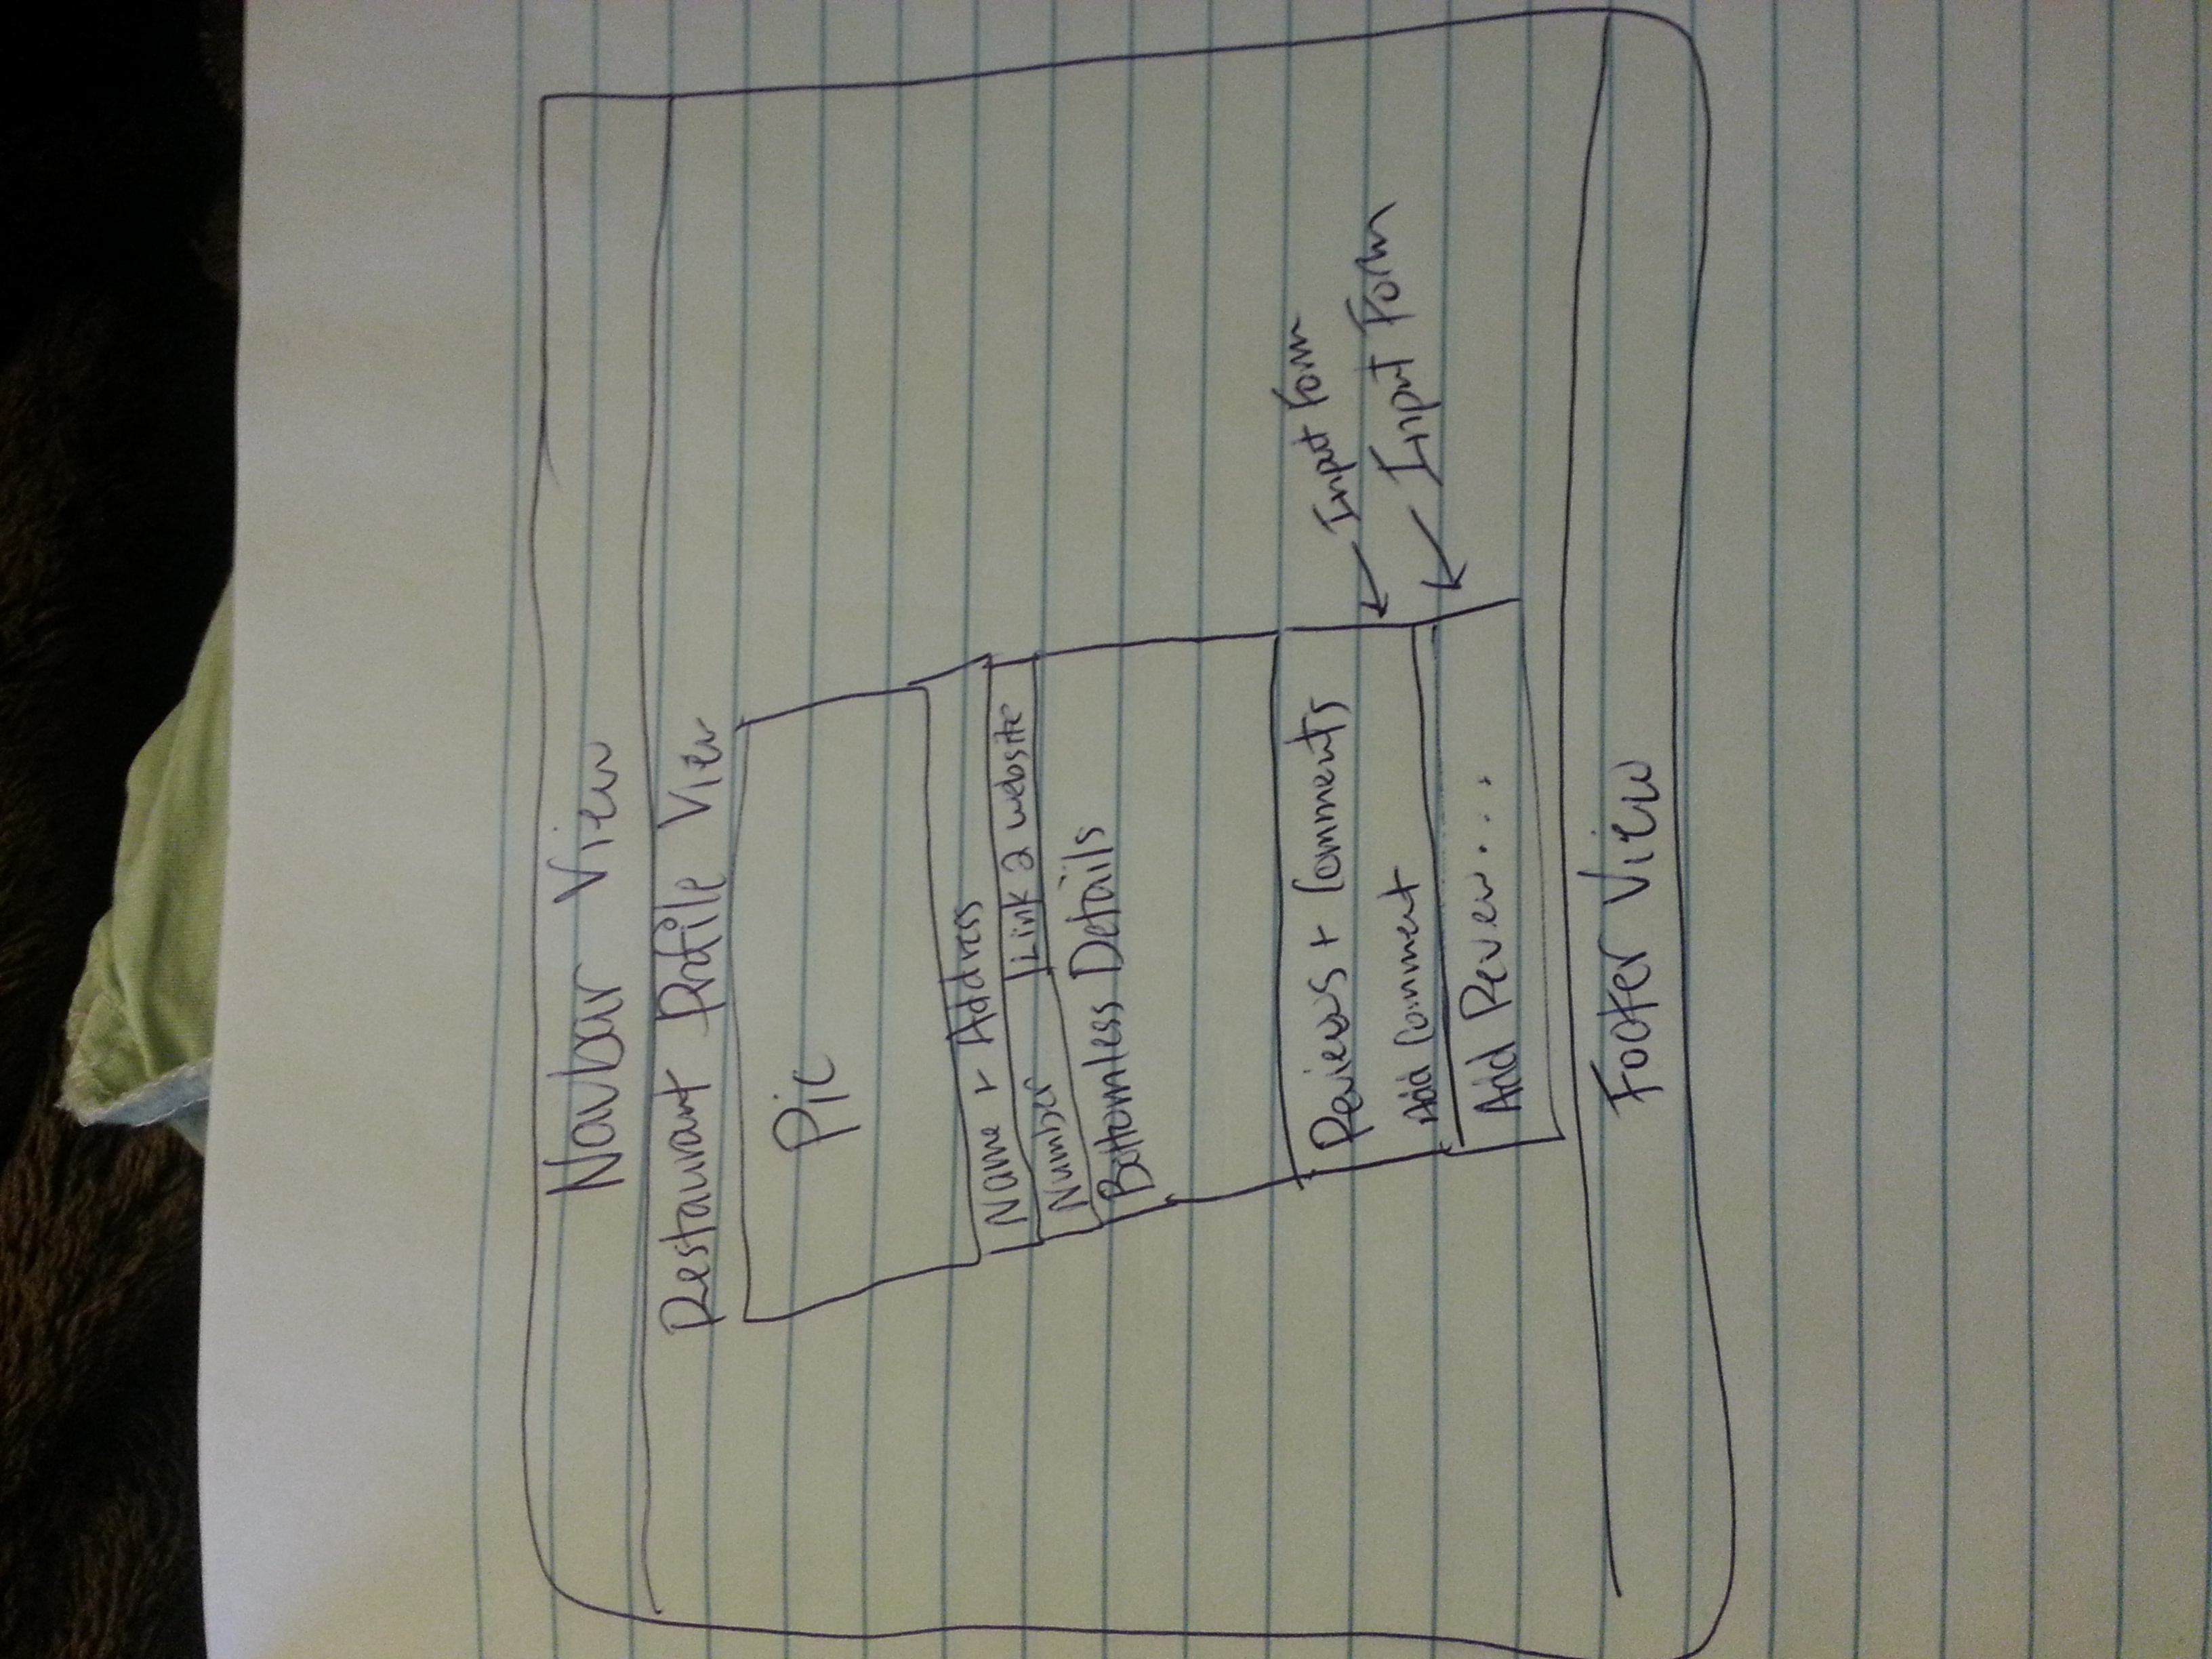 Navbar View
Restaurant Profile View
Pic
Name + Address
Number
Link 2 website
Bottomless Details
Reviews + Comments
Input Form
Add Comment
Input Form
Add Revew...
Footer View